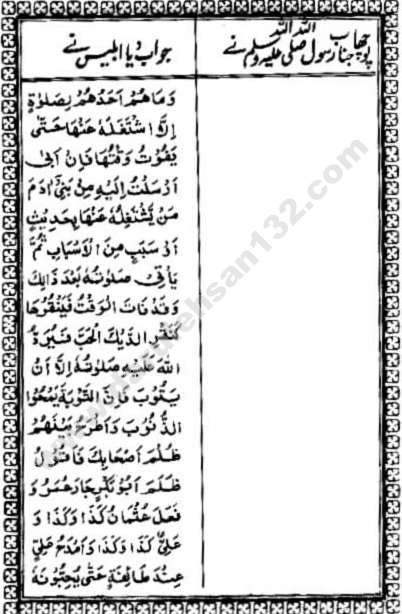 پوچھا جناب رسول اللہ صلی اللہ علیہ وسلم نے
جواب دیا ابلیس نے
وَمَا هُمْ اَحَدُهُمْ بِصَلٰوةٍ
اِلَّا اشْتَغَلَهٗ عَنْهَا حَتّٰى
يَفُوْتَ وَقْتُهَا فَاِنْ اَبٰى
اَرْسَلْتُ اِلَيْهِ مِنْ بَنِىْ اٰدَمَ
مَنْ يَّشْتَغِلُهٗ عَنْهَا بِحَدِيْثٍ
اَوْ سَبَبٍ مِنَ الْاَسْبَابِ ثُمَّ
يَأْتِىْ صَلٰوتَهٗ بَعْدَ ذَالِكَ
وَقَدْ فَاتَ الْوَقْتُ فَيَنْقُرُهَا
كَنَقْرِ الدِّيْكِ الْحَبَّ فَيَرُدُّ
اللّٰهُ عَلَيْهِ صَلٰوتَهٗ اِلَّا اَنْ
يَتُوْبَ فَاِنَّ التَّوْبَةَ يَمْحُوْا
الذُّنُوْبَ وَاَطْرَحُ بَيْنَهُمْ
ظُلْمَ اَصْحَابِكَ فَاَقُوْلُ
ظَلَمَ اَبُوْبَكْرٍ جَارَ عُمَرُ وَ
فَعَلَ عُثْمَانُ كَذَا وَكَذَا وَ
عَلِىٌّ كَذَا وَكَذَا وَاَمْدَحُ عَلِىَّ
عِنْدَ طَائِفَةٍ حَتّٰى يُحِبُّوْنَهٗ